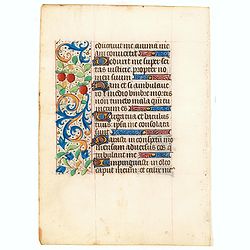 educavit me animam
am convertit
Deduxit me super semi
tas iusticie propter no
men suum
Nam et si ambulave
ro in medio umbre mortis
non timebo mala quoniam
mecum es
Virga tua et baculus
tuus ipsa me consolata
sunt
Parasti in conspectu meo
mensam adversus eos qui
tribulant me
Impinguasti in oleo
caput meum et calix me